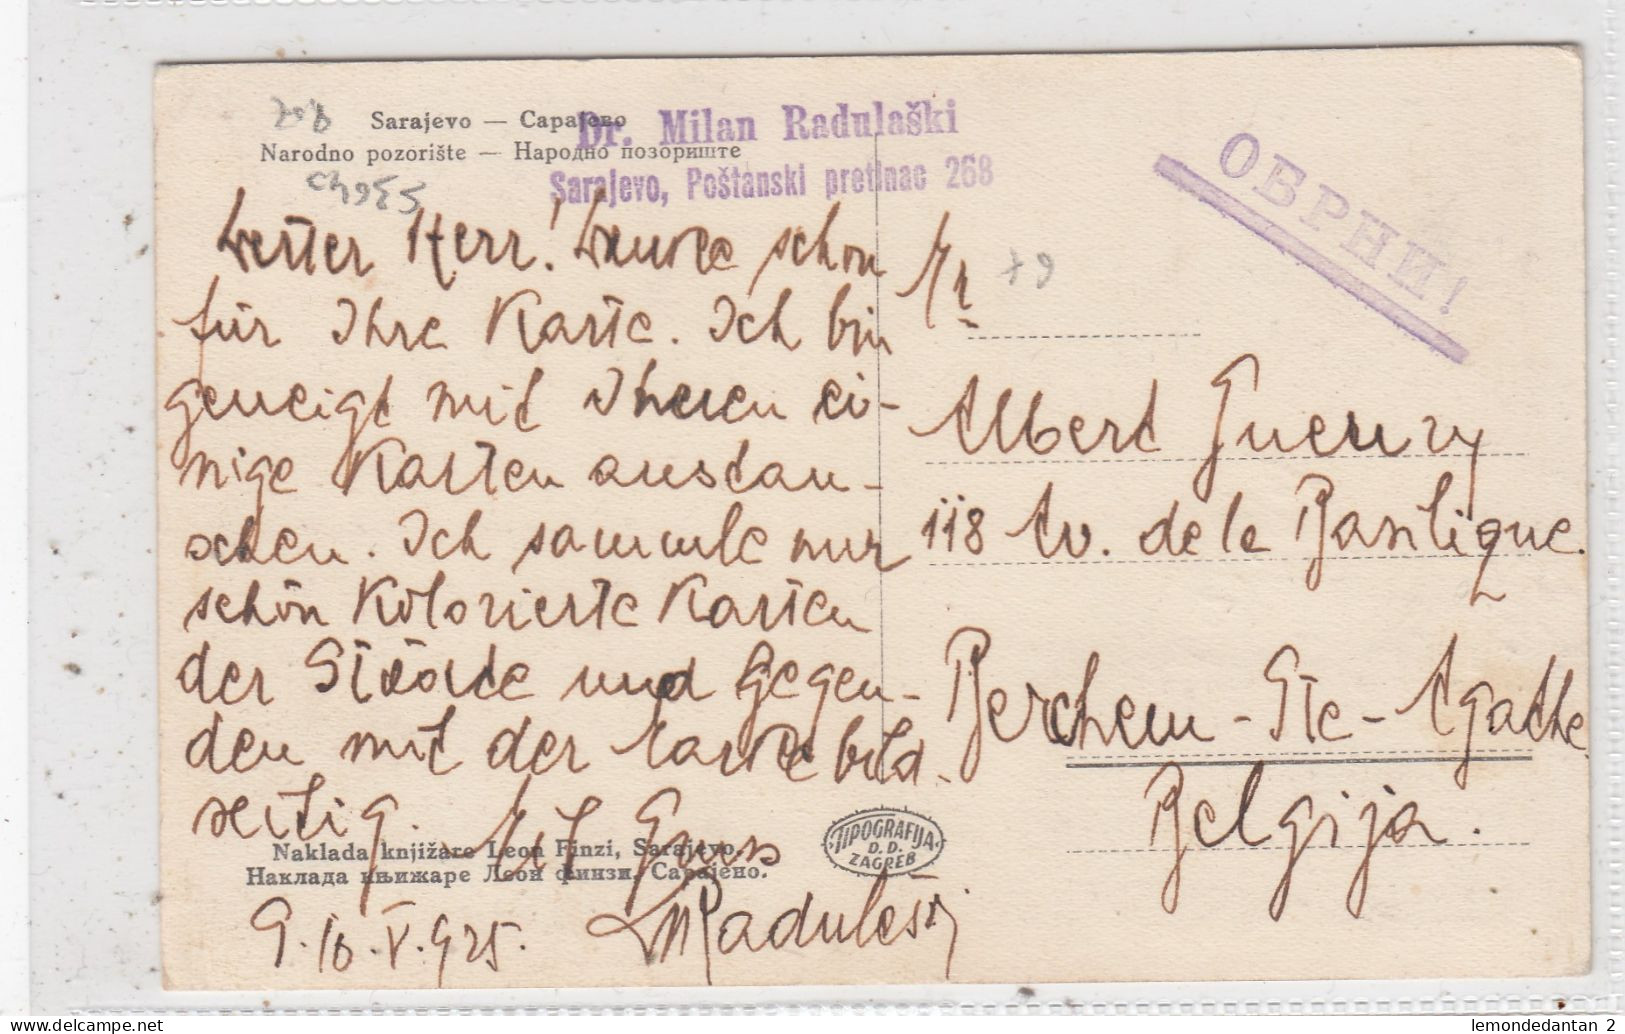 Sarajevo — Сарајево
Narodno pozorište — Народно позориште
Dr. Milan Radulaški
Sarajevo, Poštanski pretinac 268
ОВРНИ!
Werter Herr! Danke schön
für Ihre Karte. Ich bin
geneigt mit Ihnen ei-
nige Karten austau-
schen. Ich sammle nur
schön kolorierte Karten
der Städte und Gegen-
den mit der Marke bild-
seitig. Mit Gruss
MRadulaški
9.10.V.925.
Albert Guerry
118 Av. de la Basilique.
Berchem-Ste-Agathe
Belgija.
Naklada knjižare Leon Finzi, Sarajevo.
Наклада књижаре Леон Финзи, Сарајево.
TIPOGRAFIJA
D. D.
ZAGREB
lemondedantan 2